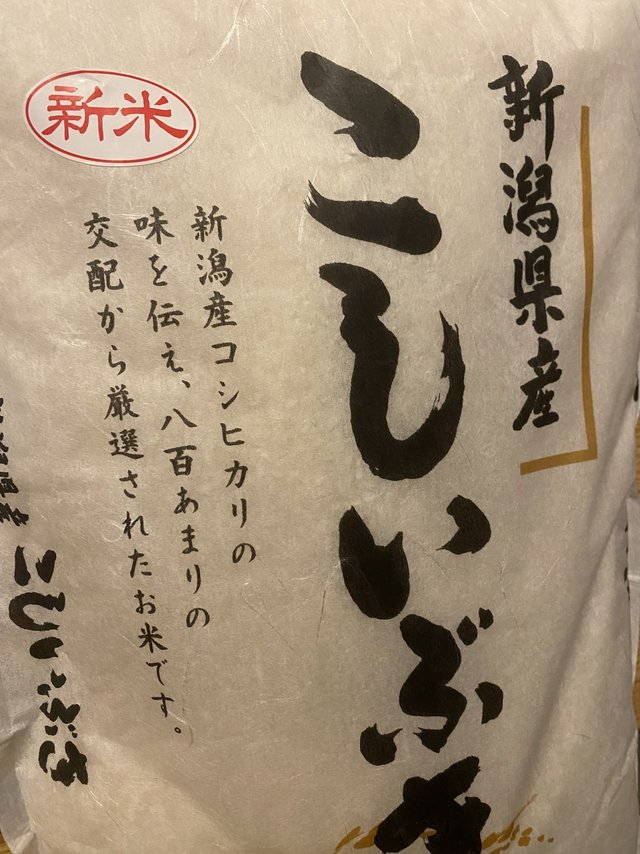 新潟県産
こしいぶき
新米
新潟産コシヒカリの
味を伝え、八百あまりの
交配から厳選されたお米です。
こしいぶき